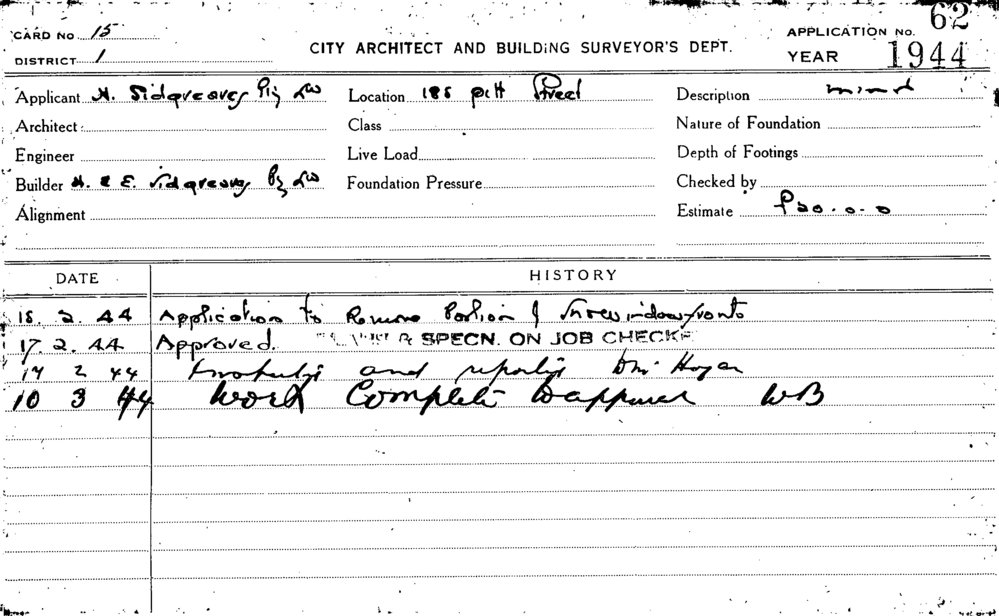 CARD No 15
DISTRICT 1
CITY ARCHITECT AND BUILDING SURVEYOR'S DEPT.
APPLICATION No. 62
YEAR 1944
Applicant H. Sidgreaves Pty Ltd
Location 185 pitt Street
Description minor
Architect
Class
Nature of Foundation
Engineer
Live Load
Depth of Footings
Builder H. & E. Sidgreaves Pty Ltd
Foundation Pressure
Checked by
Alignment
Estimate £20.0.0
DATE HISTORY
15. 2. 44 Application to Remove Portion of windowfronts
17. 2. 44 Approved. SPECN. ON JOB CHECKE
2 44 and Hogan
10 3 44 Work Complete WB